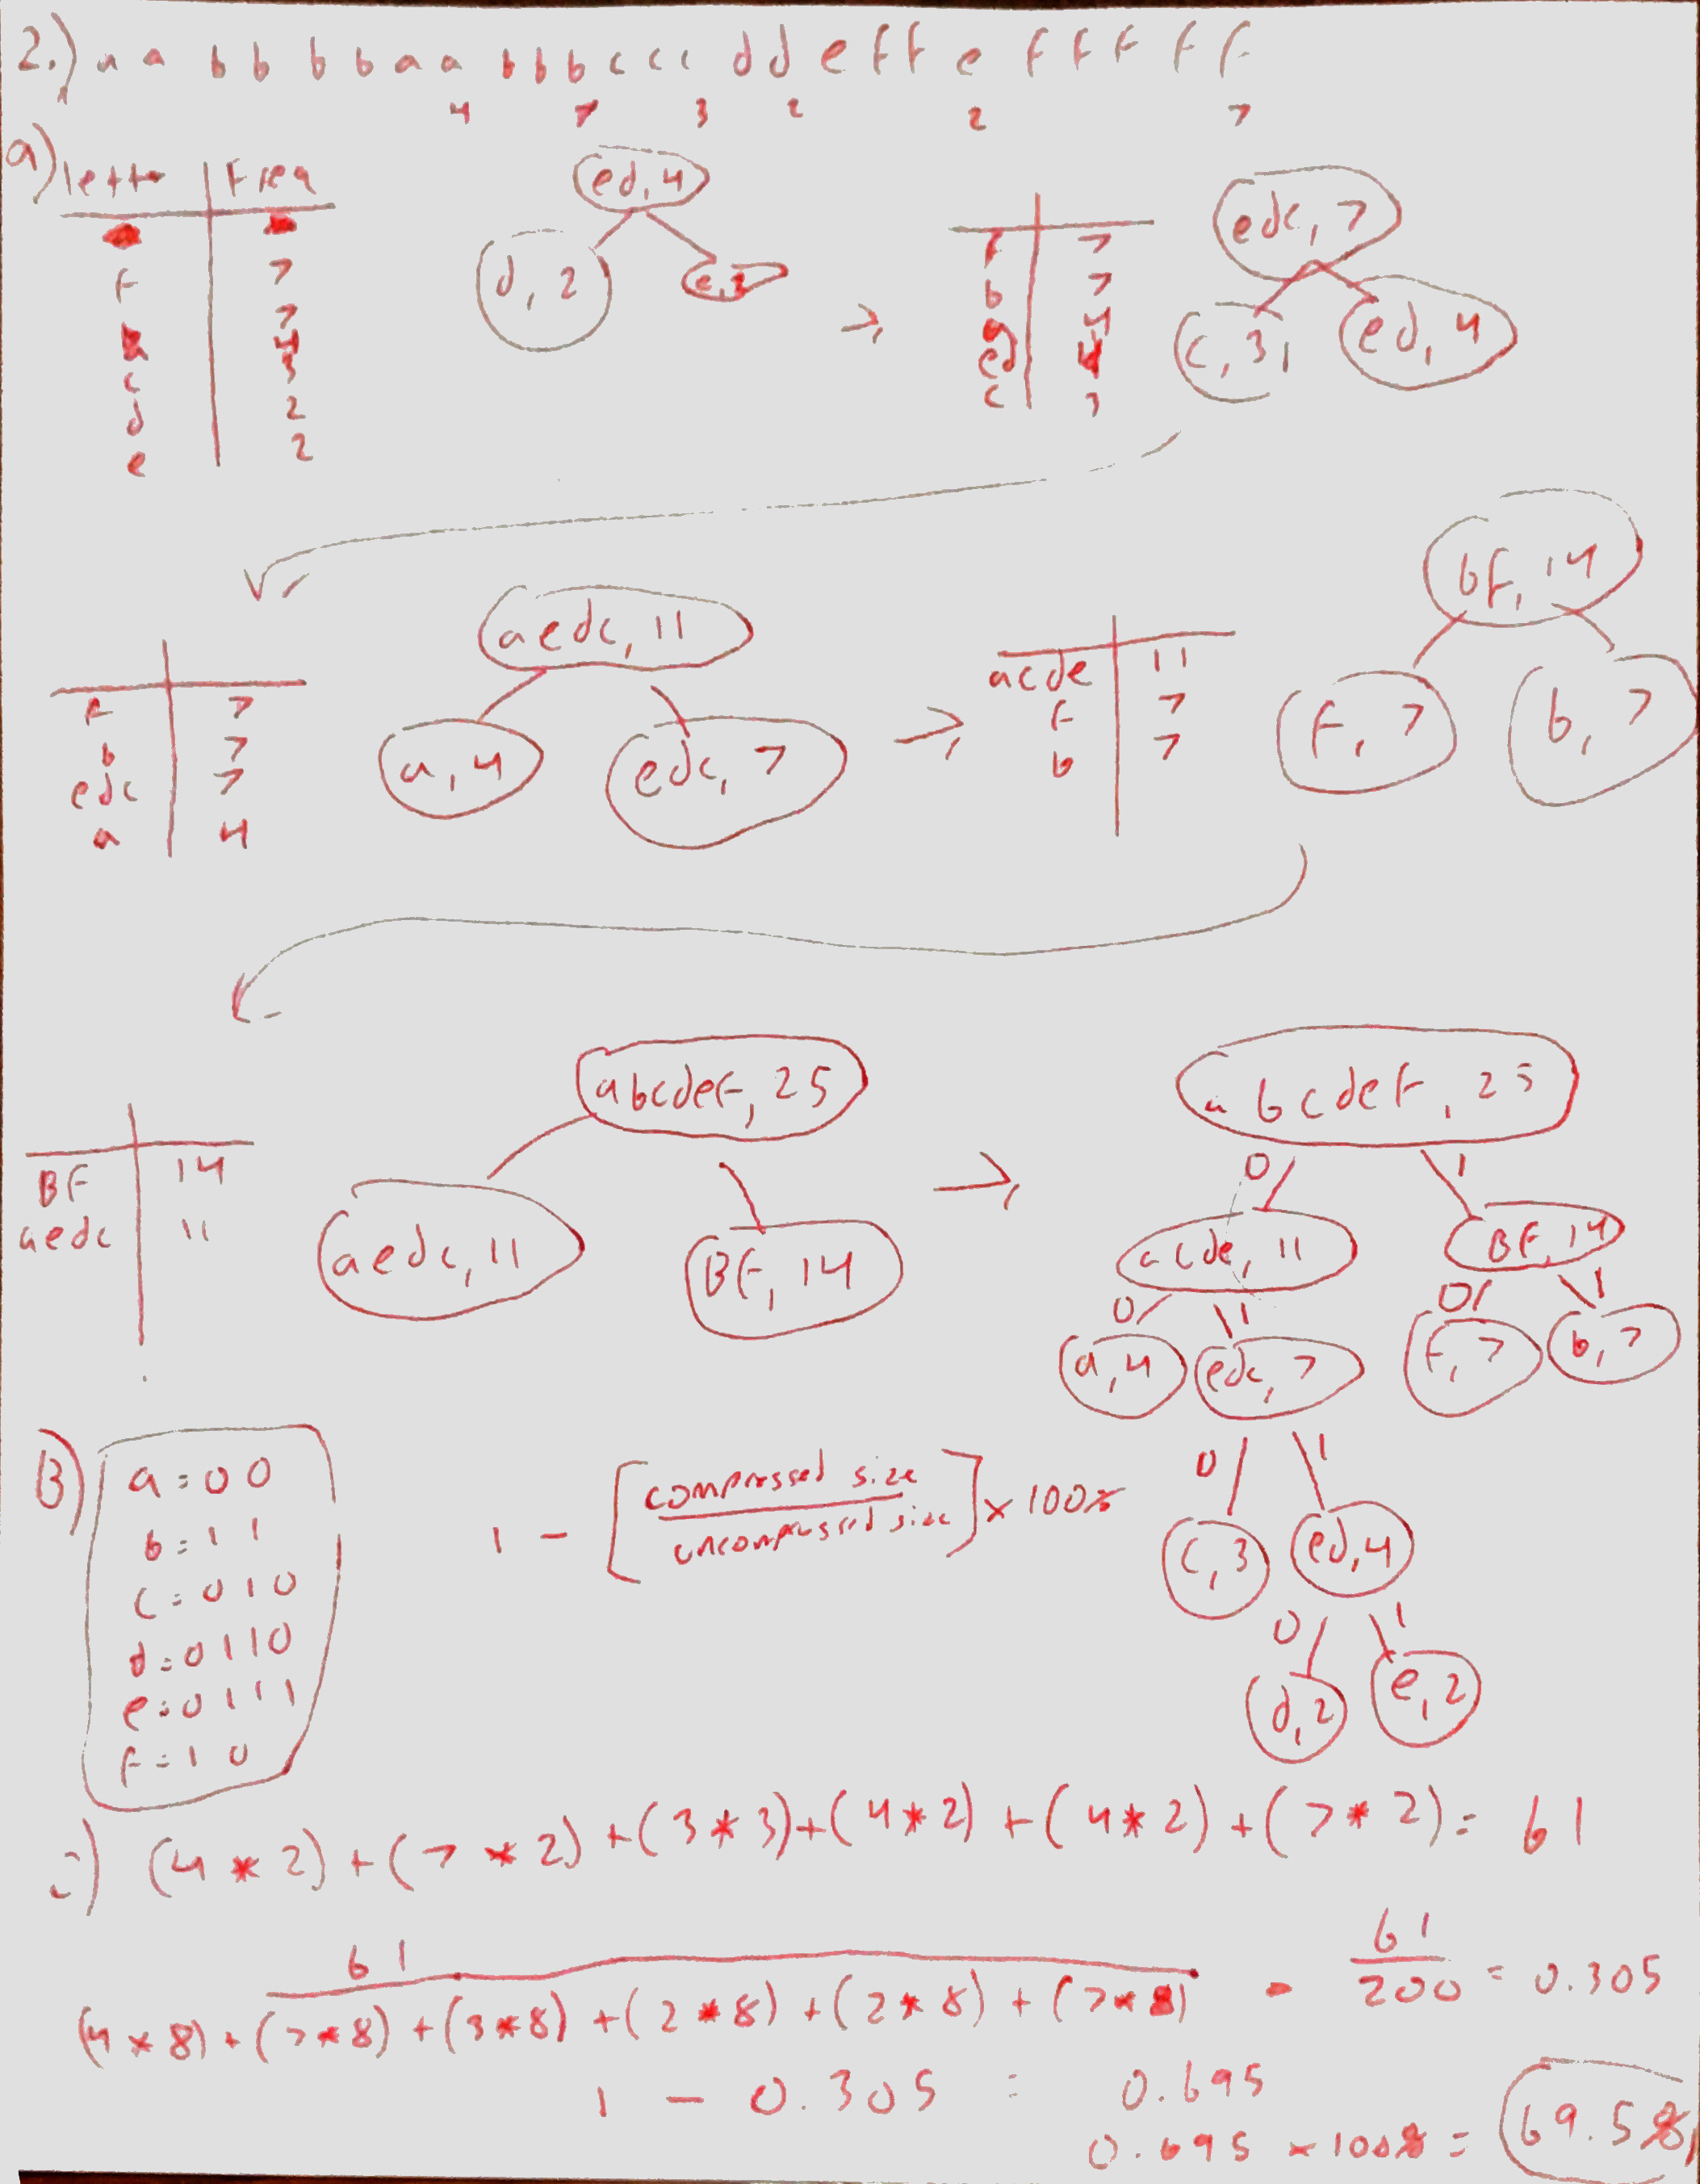 2.) a a b b b b a a b b b c c c d d e f f e f f f f f
4 7 3 2 2 7
a) letter Freq
f 7
7
a 4
c 3
d 2
e 2
ed, 4
d, 2 e, 2
→
f 7
b 7
a 4
ed 4
c 3
edc, 7
c, 3 ed, 4
f 7
b 7
edc 7
a 4
aedc, 11
a, 4 edc, 7
→
acde 11
f 7
b 7
bf, 14
f, 7 b, 7
BF 14
aedc 11
abcdef, 25
aedc, 11 BF, 14
→
abcdef, 25
0 1
acde, 11 BF, 14
0 1 0 1
a, 4 edc, 7 f, 7 b, 7
0 1
c, 3 ed, 4
0 1
d, 2 e, 2
B) a = 00
b = 11
c = 010
d = 0110
e = 0111
f = 10
1 - [compressed size / uncompressed size] × 100%
c) (4 * 2) + (7 * 2) + (3 * 3) + (4 * 2) + (4 * 2) + (7 * 2) = 61
61
(4 * 8) + (7 * 8) + (3 * 8) + (2 * 8) + (2 * 8) + (7 * 8) = 61/200 = 0.305
1 - 0.305 = 0.695
0.695 × 100% = 69.5%